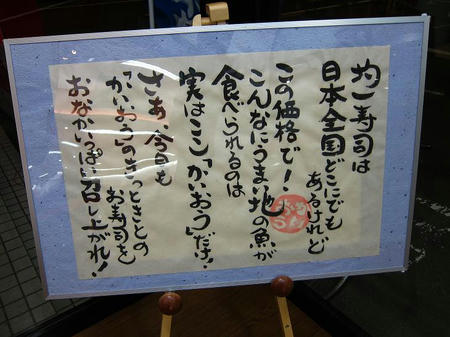 均一寿司は
日本全国どこにでも
あるけれど
この価格で!
こんなにうまい地の魚が
食べられるのは
実はここ「かいおう」だけ!
さあ 今日も
「かいおう」のきっときとの
お寿司を
おなかいっぱい召し上がれ!